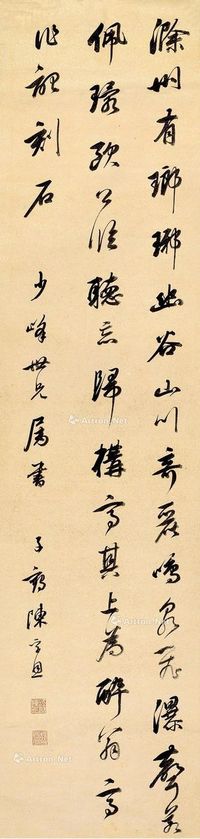 滁州有瑯琊幽谷山川奇麗鳴泉飛瀑聲若
佩環歐公臨聽忘歸構亭其上為醉翁亭
作記刻石
少峰世兄屬書
子鶴陳孚恩
Artron.Net